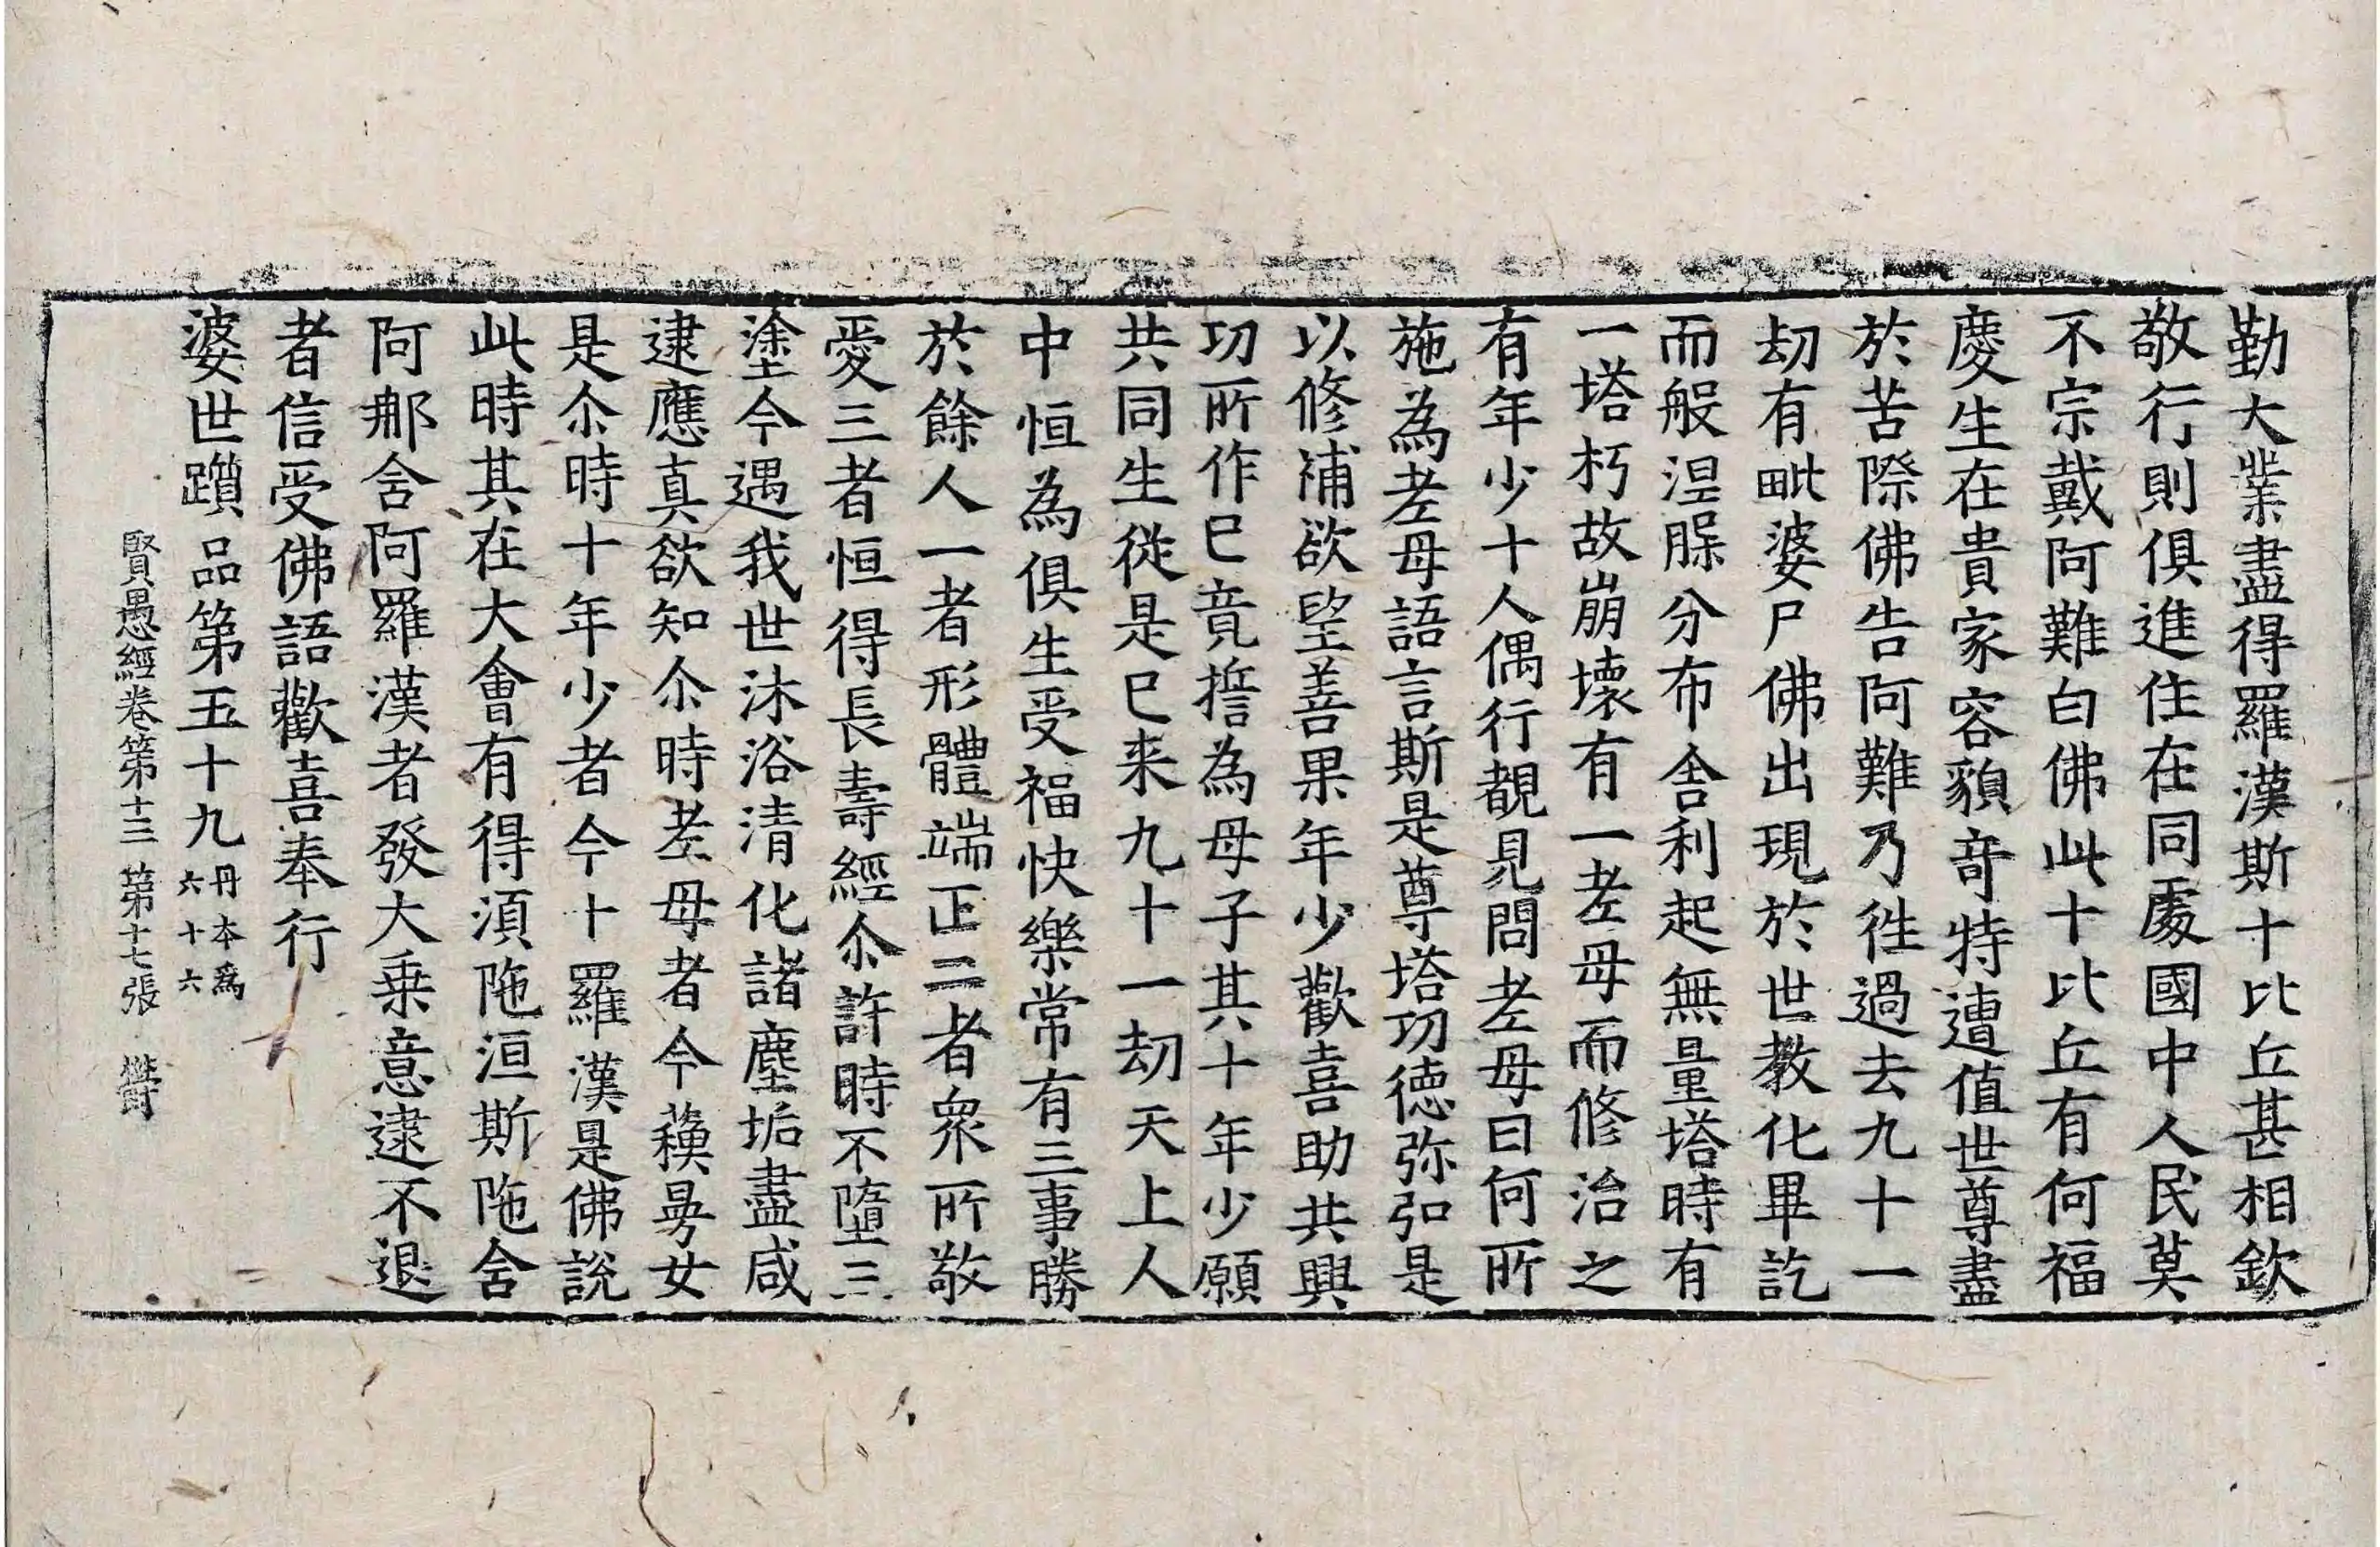 勤大業盡得羅漢斯十比丘甚相欽
敬行則俱進住在同處國中人民莫
不宗戴阿難白佛此十比丘有何福
慶生在貴家容貌奇特遭值世尊盡
於苦際佛告阿難乃徃過去九十一
劫有毗婆尸佛出現於世教化畢訖
而般涅槃分布舍利起無量塔時有
一塔朽故崩壞有一老母而修治之
有年少十人偶行覩見問老母曰何所
施為老母語言斯是尊塔功徳弥弘是
以修補欲望善果年少歡喜助共興
功所作已竟誓為母子其十年少願
共同生從是已来九十一劫天上人
中恒為俱生受福快樂常有三事勝
於餘人一者形體端正二者衆所敬
愛三者恒得長壽經尒許時不墮三
塗今遇我世沐浴清化諸塵垢盡咸
逮應真欲知尒時老母者今蘓曼女
是尒時十年少者今十羅漢是佛說
此時其在大會有得湏陁洹斯陁含
阿那含阿羅漢者發大乗意逮不退
者信受佛語歡喜奉行
婆世躓品第五十九 丹本為六十六
賢愚經卷第十三 第十七張 欝